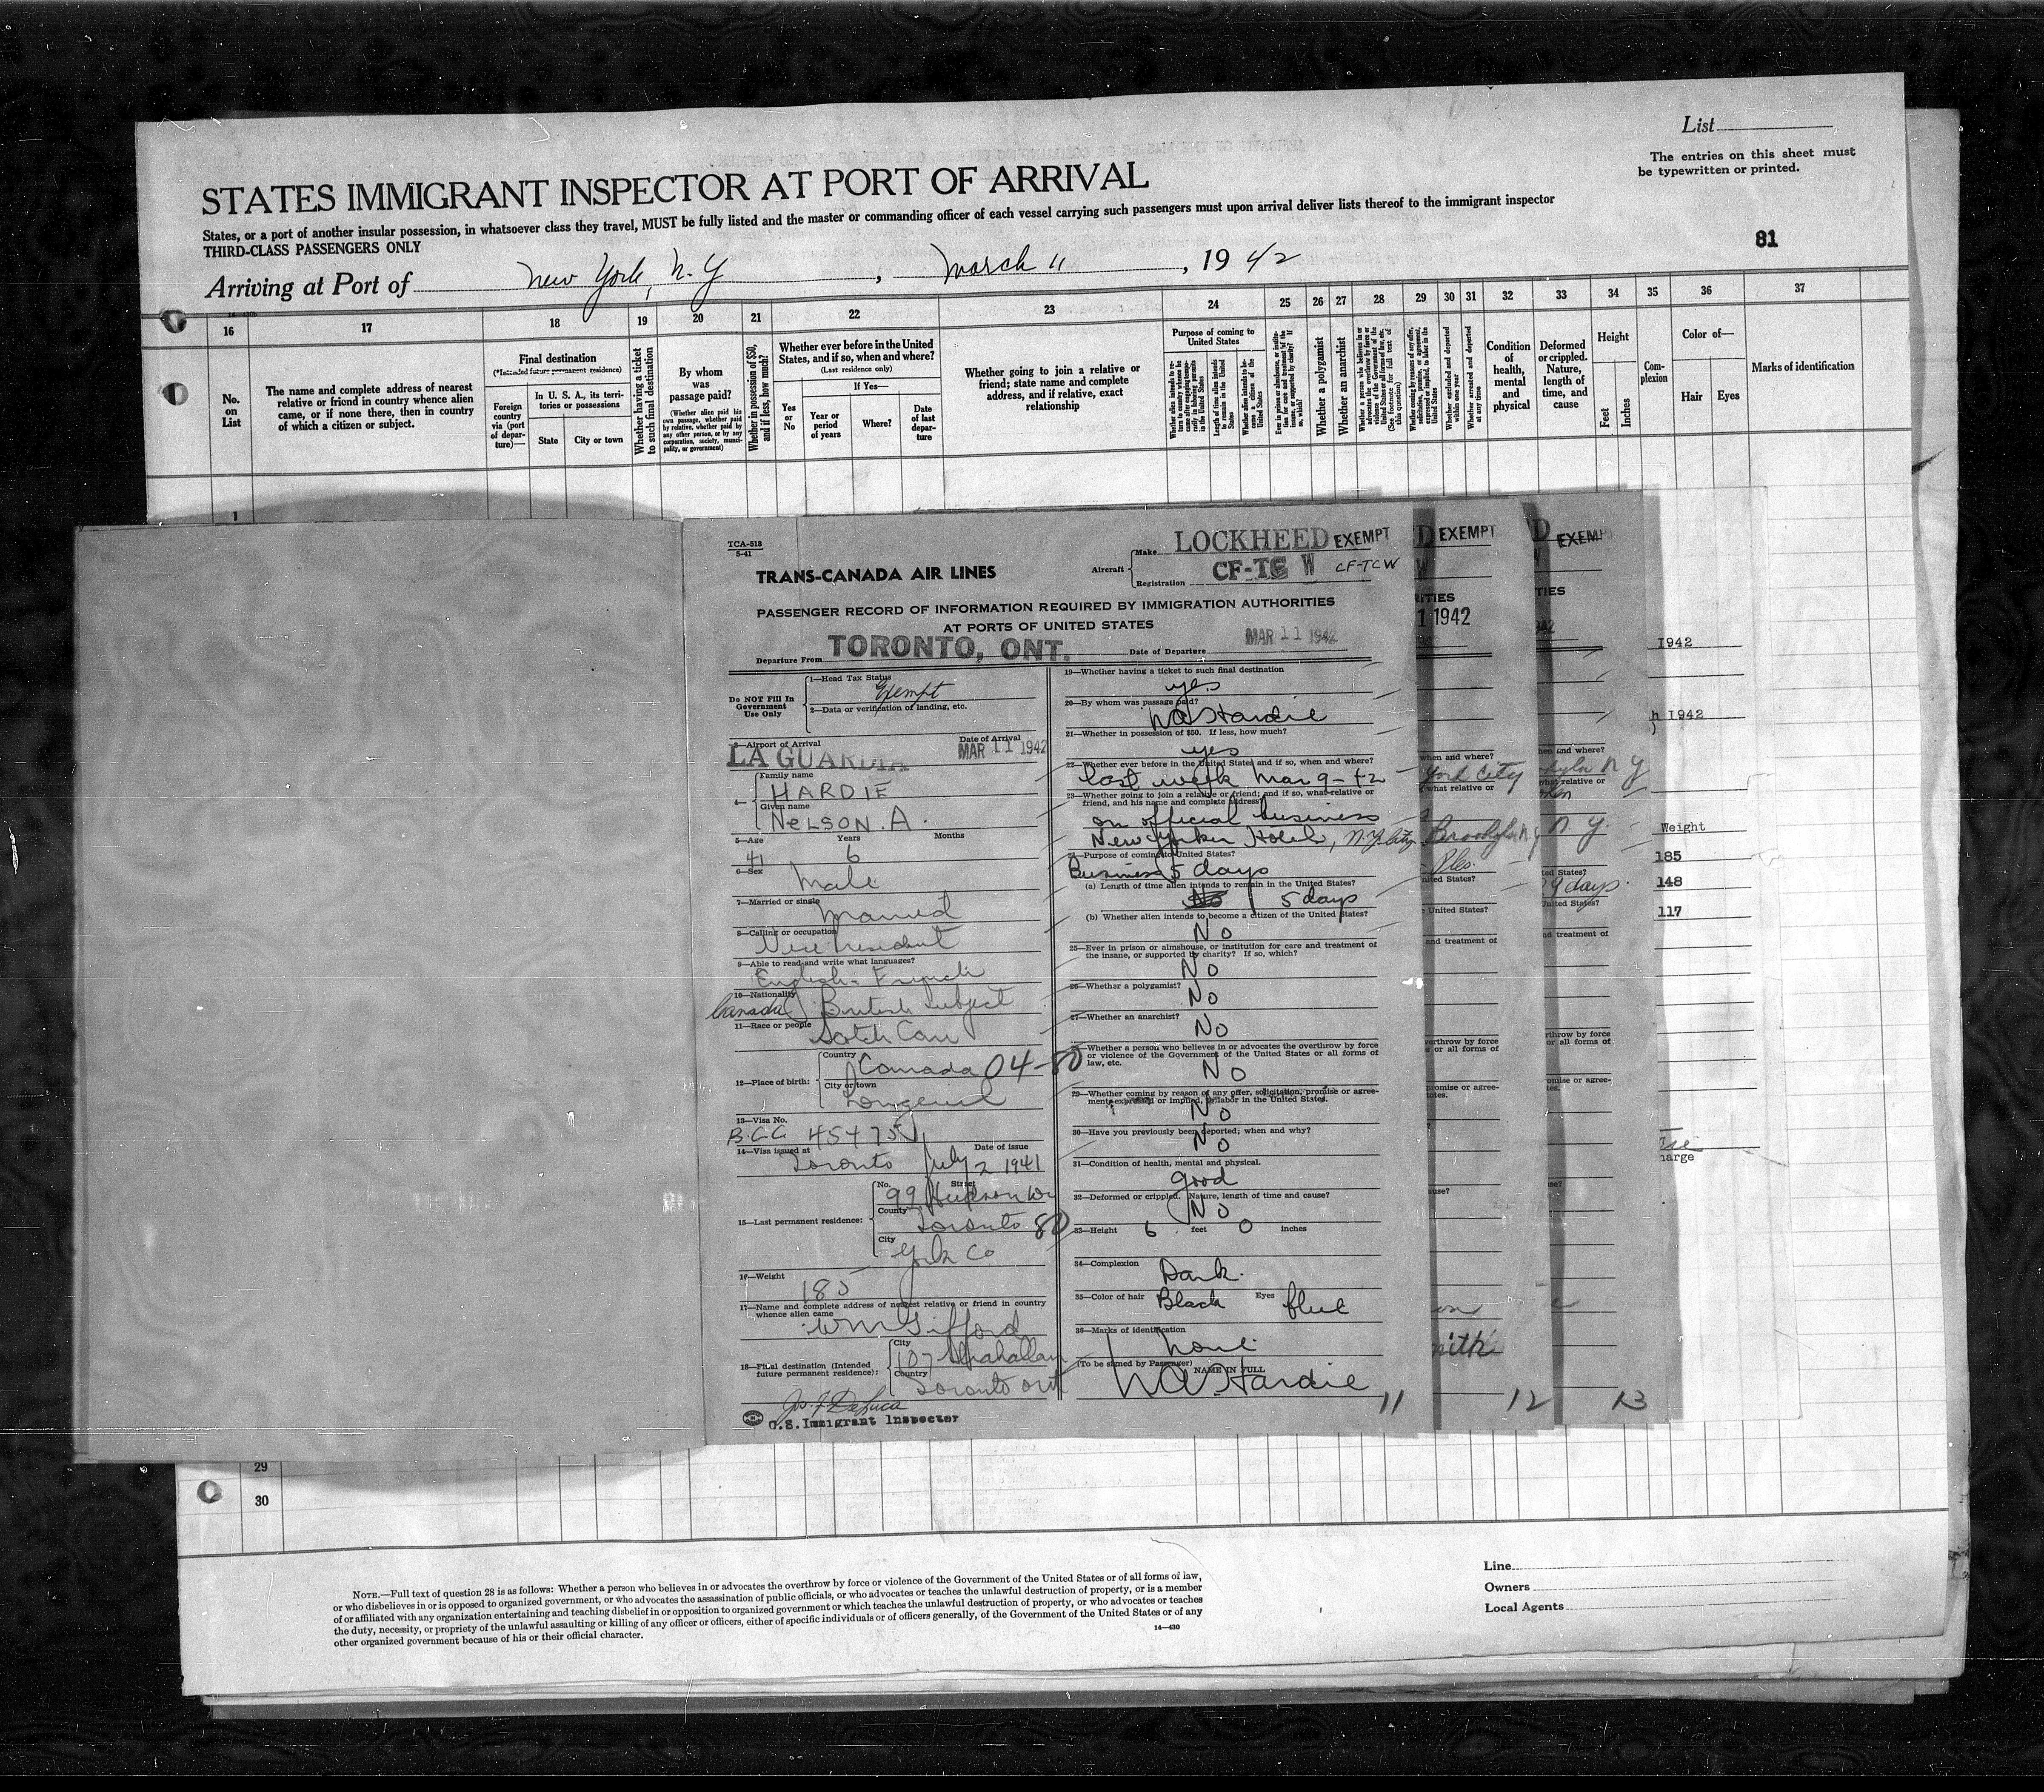 List
The entries on this sheet must
be typewritten or printed.
STATES IMMIGRANT INSPECTOR AT PORT OF ARRIVAL
States, or a port of another insular possession, in whatsoever class they travel, MUST be fully listed and the master or commanding officer of each vessel carrying such passengers must upon arrival deliver lists thereof to the immigrant inspector
THIRD-CLASS PASSENGERS ONLY
81
Arriving at Port of New York, N. Y, March 11, 1942
16 17 18 19 20 21 22 23 24 25 26 27 28 29 30 31 32 33 34 35 36 37
No. on List
The name and complete address of nearest
relative or friend in country whence alien
came, or if none there, then in country
of which a citizen or subject.
Final destination
(*Intended future permanent residence)
Foreign country via (port of departure)—
In U. S. A., its territories or possessions
State
City or town
Whether having a ticket to such final destination
By whom was passage paid?
(Whether alien paid his own passage, whether paid by relative, whether paid by any other person, or by any corporation, society, municipality, or government)
Whether in possession of $50, and if less, how much?
Whether ever before in the United
States, and if so, when and where?
(Last residence only)
If Yes—
Yes or No
Year or period of years
Where?
Date of last departure
Whether going to join a relative or
friend; state name and complete
address, and if relative, exact
relationship
Purpose of coming to
United States
Whether a polygamist
Whether an anarchist
Condition of health, mental and physical
Deformed or crippled. Nature, length of time, and cause
Height
Feet
Inches
Complexion
Color of—
Hair
Eyes
Marks of identification
TCA-518
5-41
TRANS-CANADA AIR LINES
Aircraft
Make LOCKHEED EXEMPT
Registration CF-TC W CF-TCW
PASSENGER RECORD OF INFORMATION REQUIRED BY IMMIGRATION AUTHORITIES
AT PORTS OF UNITED STATES
Departure From TORONTO, ONT. Date of Departure MAR 11 1942
Do NOT Fill In
Government
Use Only
1—Head Tax Status
Exempt
2—Data or verification of landing, etc.
3—Airport of Arrival Date of Arrival
LA GUARDIA MAR 11 1942
4—
Family name
HARDIE
Given name
NELSON. A.
5—Age Years Months
41 6
6—Sex
Male
7—Married or single
Married
8—Calling or occupation
Vice President
9—Able to read and write what languages?
English - French
10—Nationality
Canada British subject
11—Race or people
Scotch Can
12—Place of birth:
Country
Canada 04-80
City or town
Longeuil
13—Visa No.
B.C.C. 45475
14—Visa issued at Date of issue
Toronto July 2 1941
15—Last permanent residence:
No. Street
99 Hudson Dr
County
Toronto 80
City
York Co
16—Weight
185
17—Name and complete address of nearest relative or friend in country
whence alien came
W M Gifford
18—Final destination (Intended
future permanent residence):
City
107
Country
Toronto Ont
Jos. J DeLuca
U.S. Immigrant Inspector
19—Whether having a ticket to such final destination
yes
20—By whom was passage paid?
N A Hardie
21—Whether in possession of $50. If less, how much?
yes
22—Whether ever before in the United States and if so, when and where?
last week Mar 9-42
23—Whether going to join a relative or friend; and if so, what relative or
friend, and his name and complete address?
on official business
New Yorker Hotel, N.Y. City
24—Purpose of coming to United States?
Business 5 days
(a) Length of time alien intends to remain in the United States?
No 5 days
(b) Whether alien intends to become a citizen of the United States?
No
25—Ever in prison or almshouse, or institution for care and treatment of
the insane, or supported by charity? If so, which?
No
26—Whether a polygamist?
No
27—Whether an anarchist?
No
28—Whether a person who believes in or advocates the overthrow by force
or violence of the Government of the United States or all forms of
law, etc.
No
29—Whether coming by reason of any offer, solicitation, promise or agree-
ment, expressed or implied, to labor in the United States.
No
30—Have you previously been deported; when and why?
No
31—Condition of health, mental and physical.
good
32—Deformed or crippled. Nature, length of time and cause?
No
33—Height 6 feet 0 inches
34—Complexion
Dark.
35—Color of hair Black Eyes blue
36—Marks of identification
None
(To be signed by Passenger) NAME IN FULL
N A Hardie
11
D EXEMPT
W
RITIES
1 1942
when and where?
York City
what relative or
Brooklyn N Y
nited States?
United States?
and treatment of
verthrow by force
or all forms of
promise or agree-
ause?
12
D EXEMP
TIES
hen and where?
N Y
what relative or
N. Y.
ted States?
9 days.
nited States?
nd treatment of
rthrow by force
or all forms of
omise or agree-
se?
13
1942
h 1942
Weight
185
148
117
harge
29
30
NOTE.—Full text of question 28 is as follows: Whether a person who believes in or advocates the overthrow by force or violence of the Government of the United States or of all forms of law,
or who disbelieves in or is opposed to organized government, or who advocates the assassination of public officials, or who advocates or teaches the unlawful destruction of property, or is a member
of or affiliated with any organization entertaining and teaching disbelief in or opposition to organized government or which teaches the unlawful destruction of property, or who advocates or teaches
the duty, necessity, or propriety of the unlawful assaulting or killing of any officer or officers, either of specific individuals or of officers generally, of the Government of the United States or of any
other organized government because of his or their official character.
14—430
Line
Owners
Local Agents